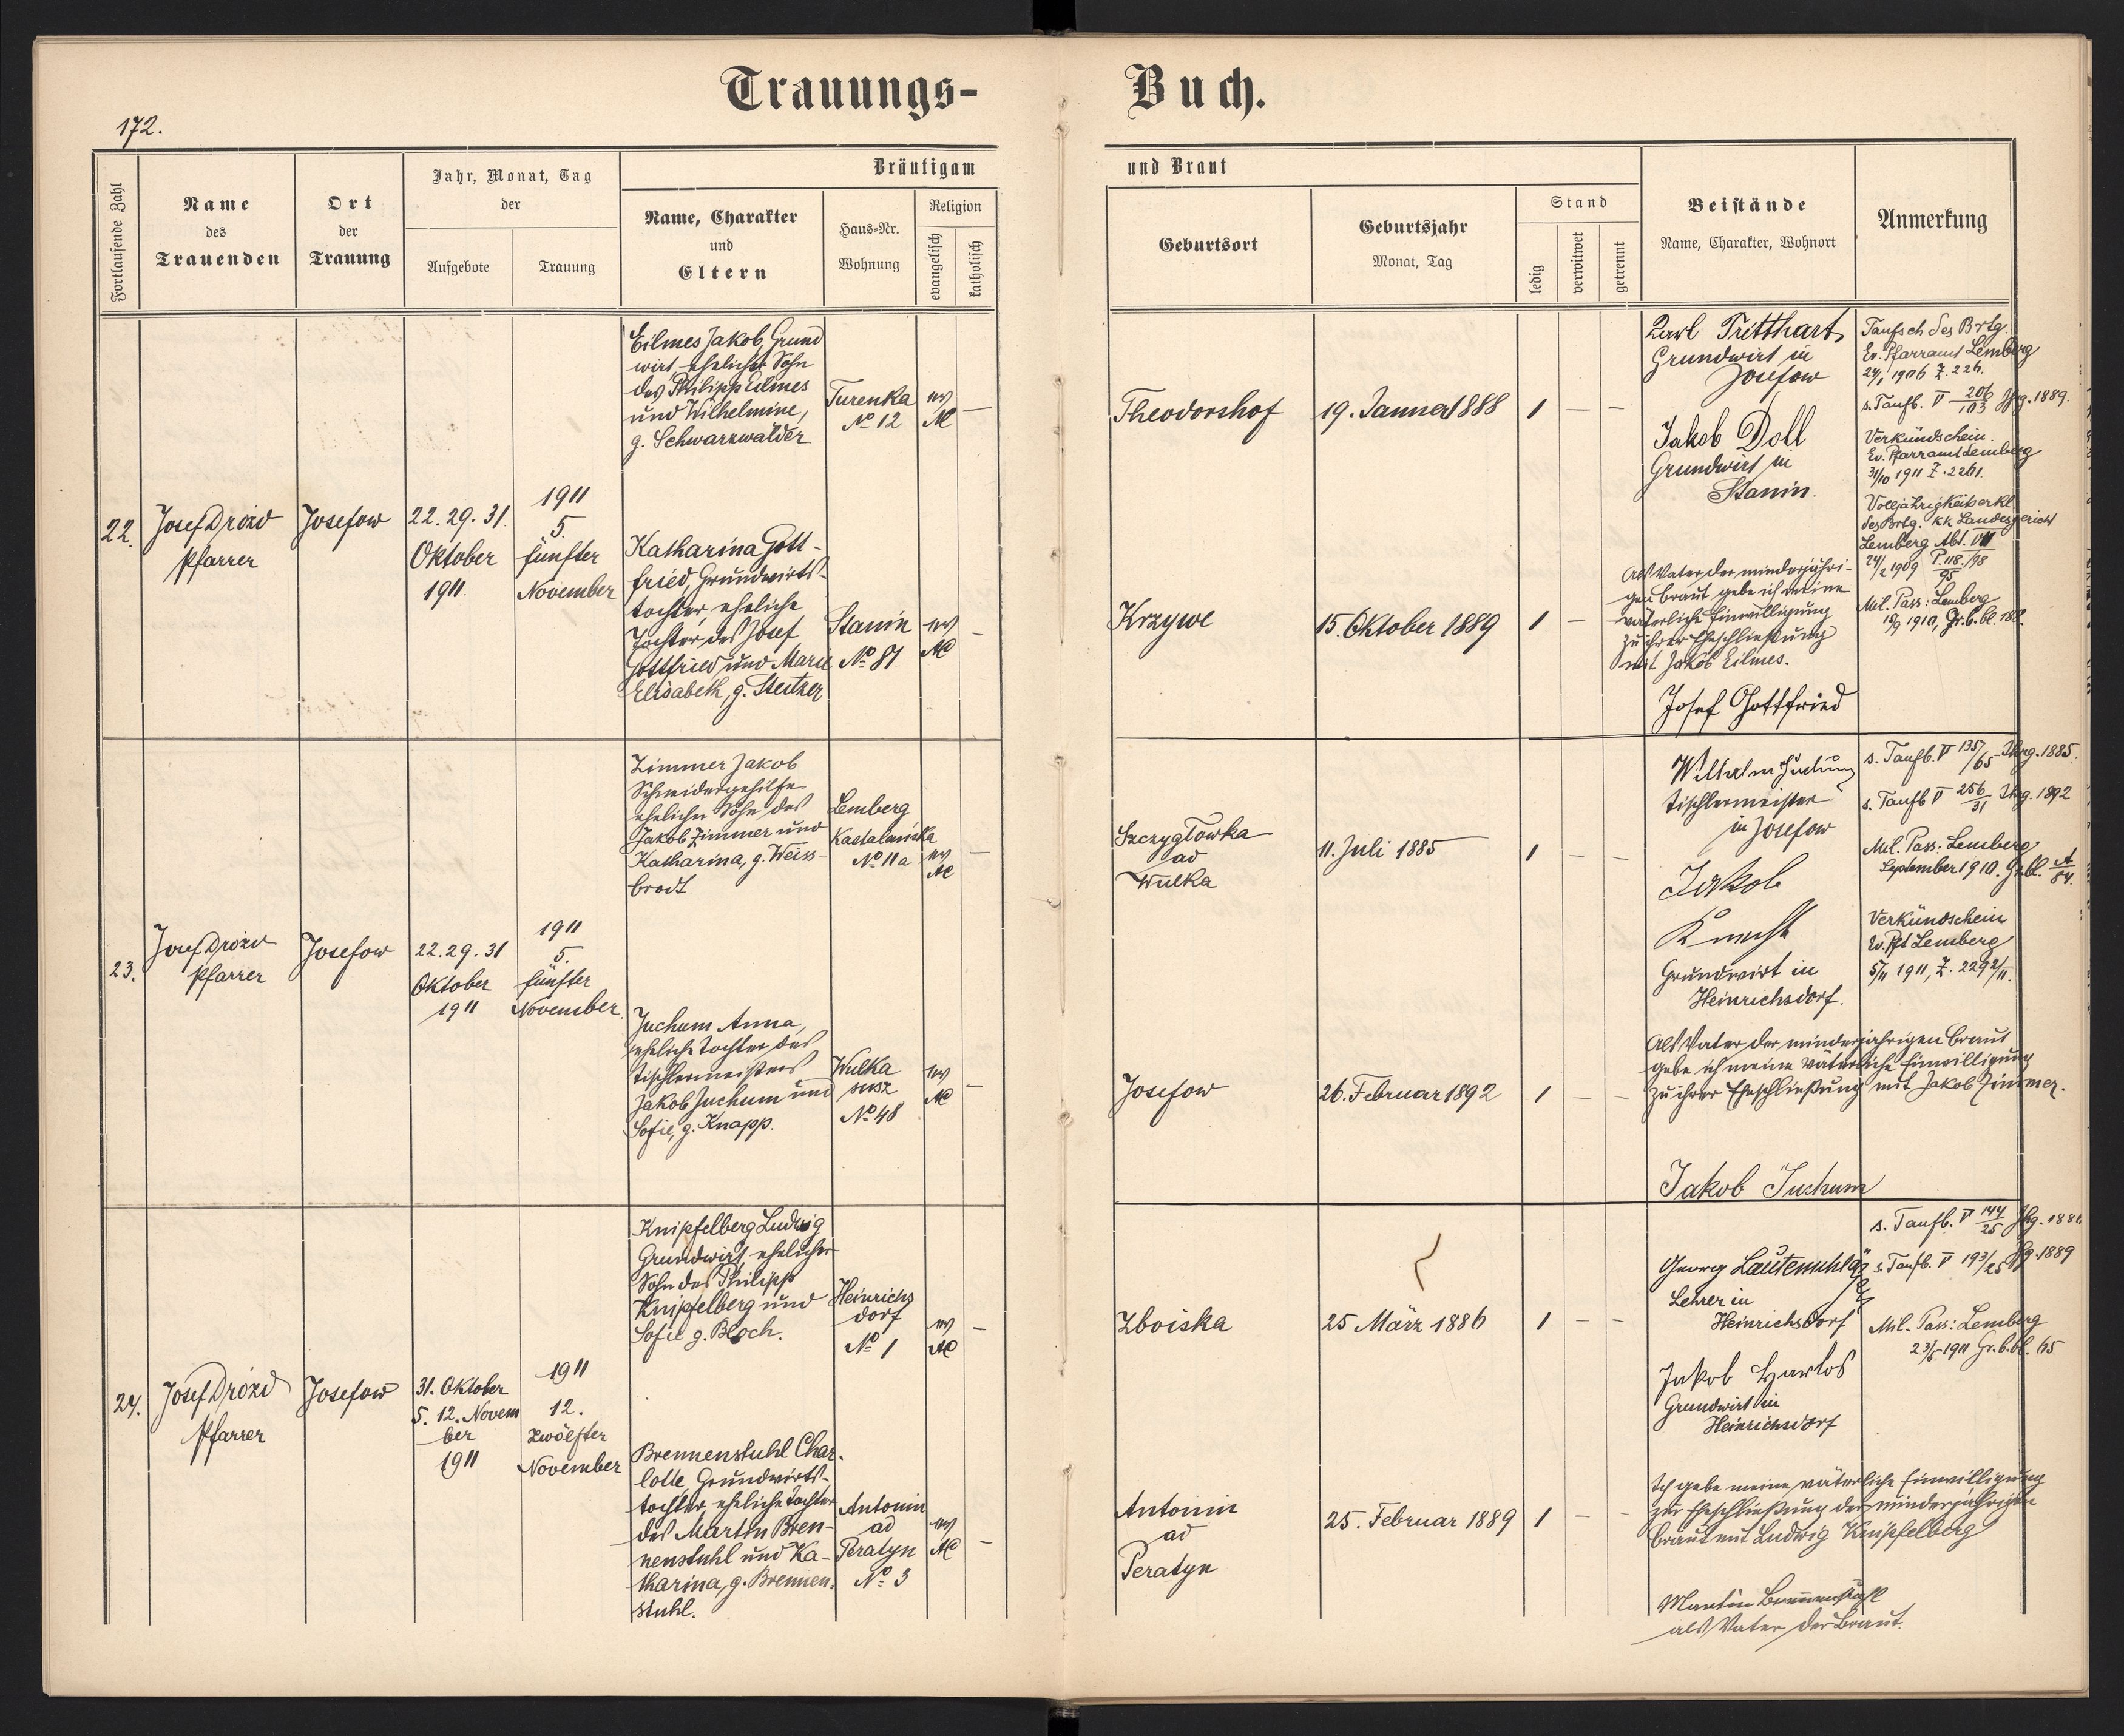 Trauungs-
Buch.
172.
Fortlaufende Zahl
Name
des
Trauenden
Ort
der
Trauung
Jahr, Monat, Tag
der
Aufgebote
Trauung
Bräutigam
Name, Charakter
und
Eltern
Haus-Nr.
Wohnung
Religion
evangelisch
katholisch
und Braut
Geburtsort
Geburtsjahr
Monat, Tag
Stand
ledig
verwitwet
getrennt
Beistände
Name, Charakter, Wohnort
Anmerkung
22.
Josef Drózd
Pfarrer
Josefow
22. 29. 31.
Oktober
1911.
1911
5.
fünfter
November
Eilmes Jakob, Grund
wirt ehelicher Sohn
des Philipp Eilmes
und Wilhelmine,
g. Schwarzwälder
Turenka
No 12
ev
AC
—
Theodorshof
19. Jänner 1888
1 — —
Katharina Gott-
fried, Grundwirts-
tochter, eheliche
Tochter des Josef
Gottfried und Marie
Elisabeth, g. Steitzer
Stanin
No 81
ev
AC
—
Krzywe
15. Oktober 1889
1 — —
Karl Tritthart,
Grundwirt in
Josefow
Jakob Doll
Grundwirt in
Stanin.
Als Vater der minderjähri-
gen Braut gebe ich meine
väterliche Einwilligung
zu ihrer Eheschließung
mit Jakob Eilmes.
Josef Gottfried
Taufsch des Brtg.
Ev. Pfarramt Lemberg
24/1 1906 Z. 226.
s. Taufb. V 206/103 Jhg. 1889.
Verkündschein.
Ev. Pfarramt Lemberg
31/10 1911 Z. 2261.
Volljährigkeitserkl.
des Brtg. KK Landesgericht
Lemberg Abt. VII
24/2 1909 P. 118./98 95
Mil. Pass: Lemberg
19/9 1910, Gr. b. bl.
23.
Josef Drózd
Pfarrer
Josefow
22. 29. 31
Oktober
1911
1911
5.
fünfter
November.
Zimmer Jakob
Schneidergehilfe
ehelicher Sohn des
Jakob Zimmer und
Katharina, g. Weiss-
brodt
Lemberg
No 11a
ev
AC
—
Szczyglowka
ad
Wulka
11. Juli 1885
1 — —
Juchum Anna,
eheliche Tochter des
Tischlermeisters
Jakob Juchum und
Sofie, g. Knapp.
Wulka
susz
No 48
ev
AC
—
Josefow
26. Februar 1892
1 — —
Wilhelm Juchum
Tischlermeister
in Josefow
Jakob
Knecht
Grundwirt in
Heinrichsdorf.
Als Vater der minderjährigen Braut
gebe ich meine väterliche Einwilligung
zu ihrer Eheschließung mit Jakob Zimmer.
Jakob Juchum
s. Taufb. V 135/65 Jhrg. 1885.
s. Taufb V 256/31 Jhrg. 1892
Mil. Pass: Lemberg
September 1910. Grbl. A/84.
Verkündschein
Ev. Pft Lemberg
5/11 1911, Z. 2292/11.
24.
Josef Drózd
Pfarrer
Josefow
31. Oktober
5. 12. Novem
ber
1911
1911
12.
zwölfter
November
Knipfelberg Ludwig
Grundwirt, ehelicher
Sohn des Philipp
Knipfelberg und
Sofie g. Bloch.
Heinrichs
dorf
No 1
ev
AC
—
Zboiska
25 März 1886
1 — —
Brennenstuhl Char-
lotte, Grundwirts-
tochter, eheliche Tochter
des Martin Bren-
nenstuhl und Ka-
tharina, g. Brennen-
stuhl.
Antonin
ad
Peratyn
No 3
ev
AC
—
Antonin
ad
Peratyn
25. Februar 1889
1 — —
Georg Lautenschläger
Lehrer in
Heinrichsdorf
Jakob Harlos
Grundwirt in
Heinrichsdorf
Ich gebe meine väterliche Einwilligung
zur Eheschließung der minderjährigen
Braut mit Ludwig Knipfelberg
Martin Brennenstuhl
als Vater der Braut.
s. Taufb. V 144/25 Jhg.
s. Taufb. V 193/25 Jhg. 1889
Mil. Pass: Lemberg
23/5 1911 Gr. b. bl. 65